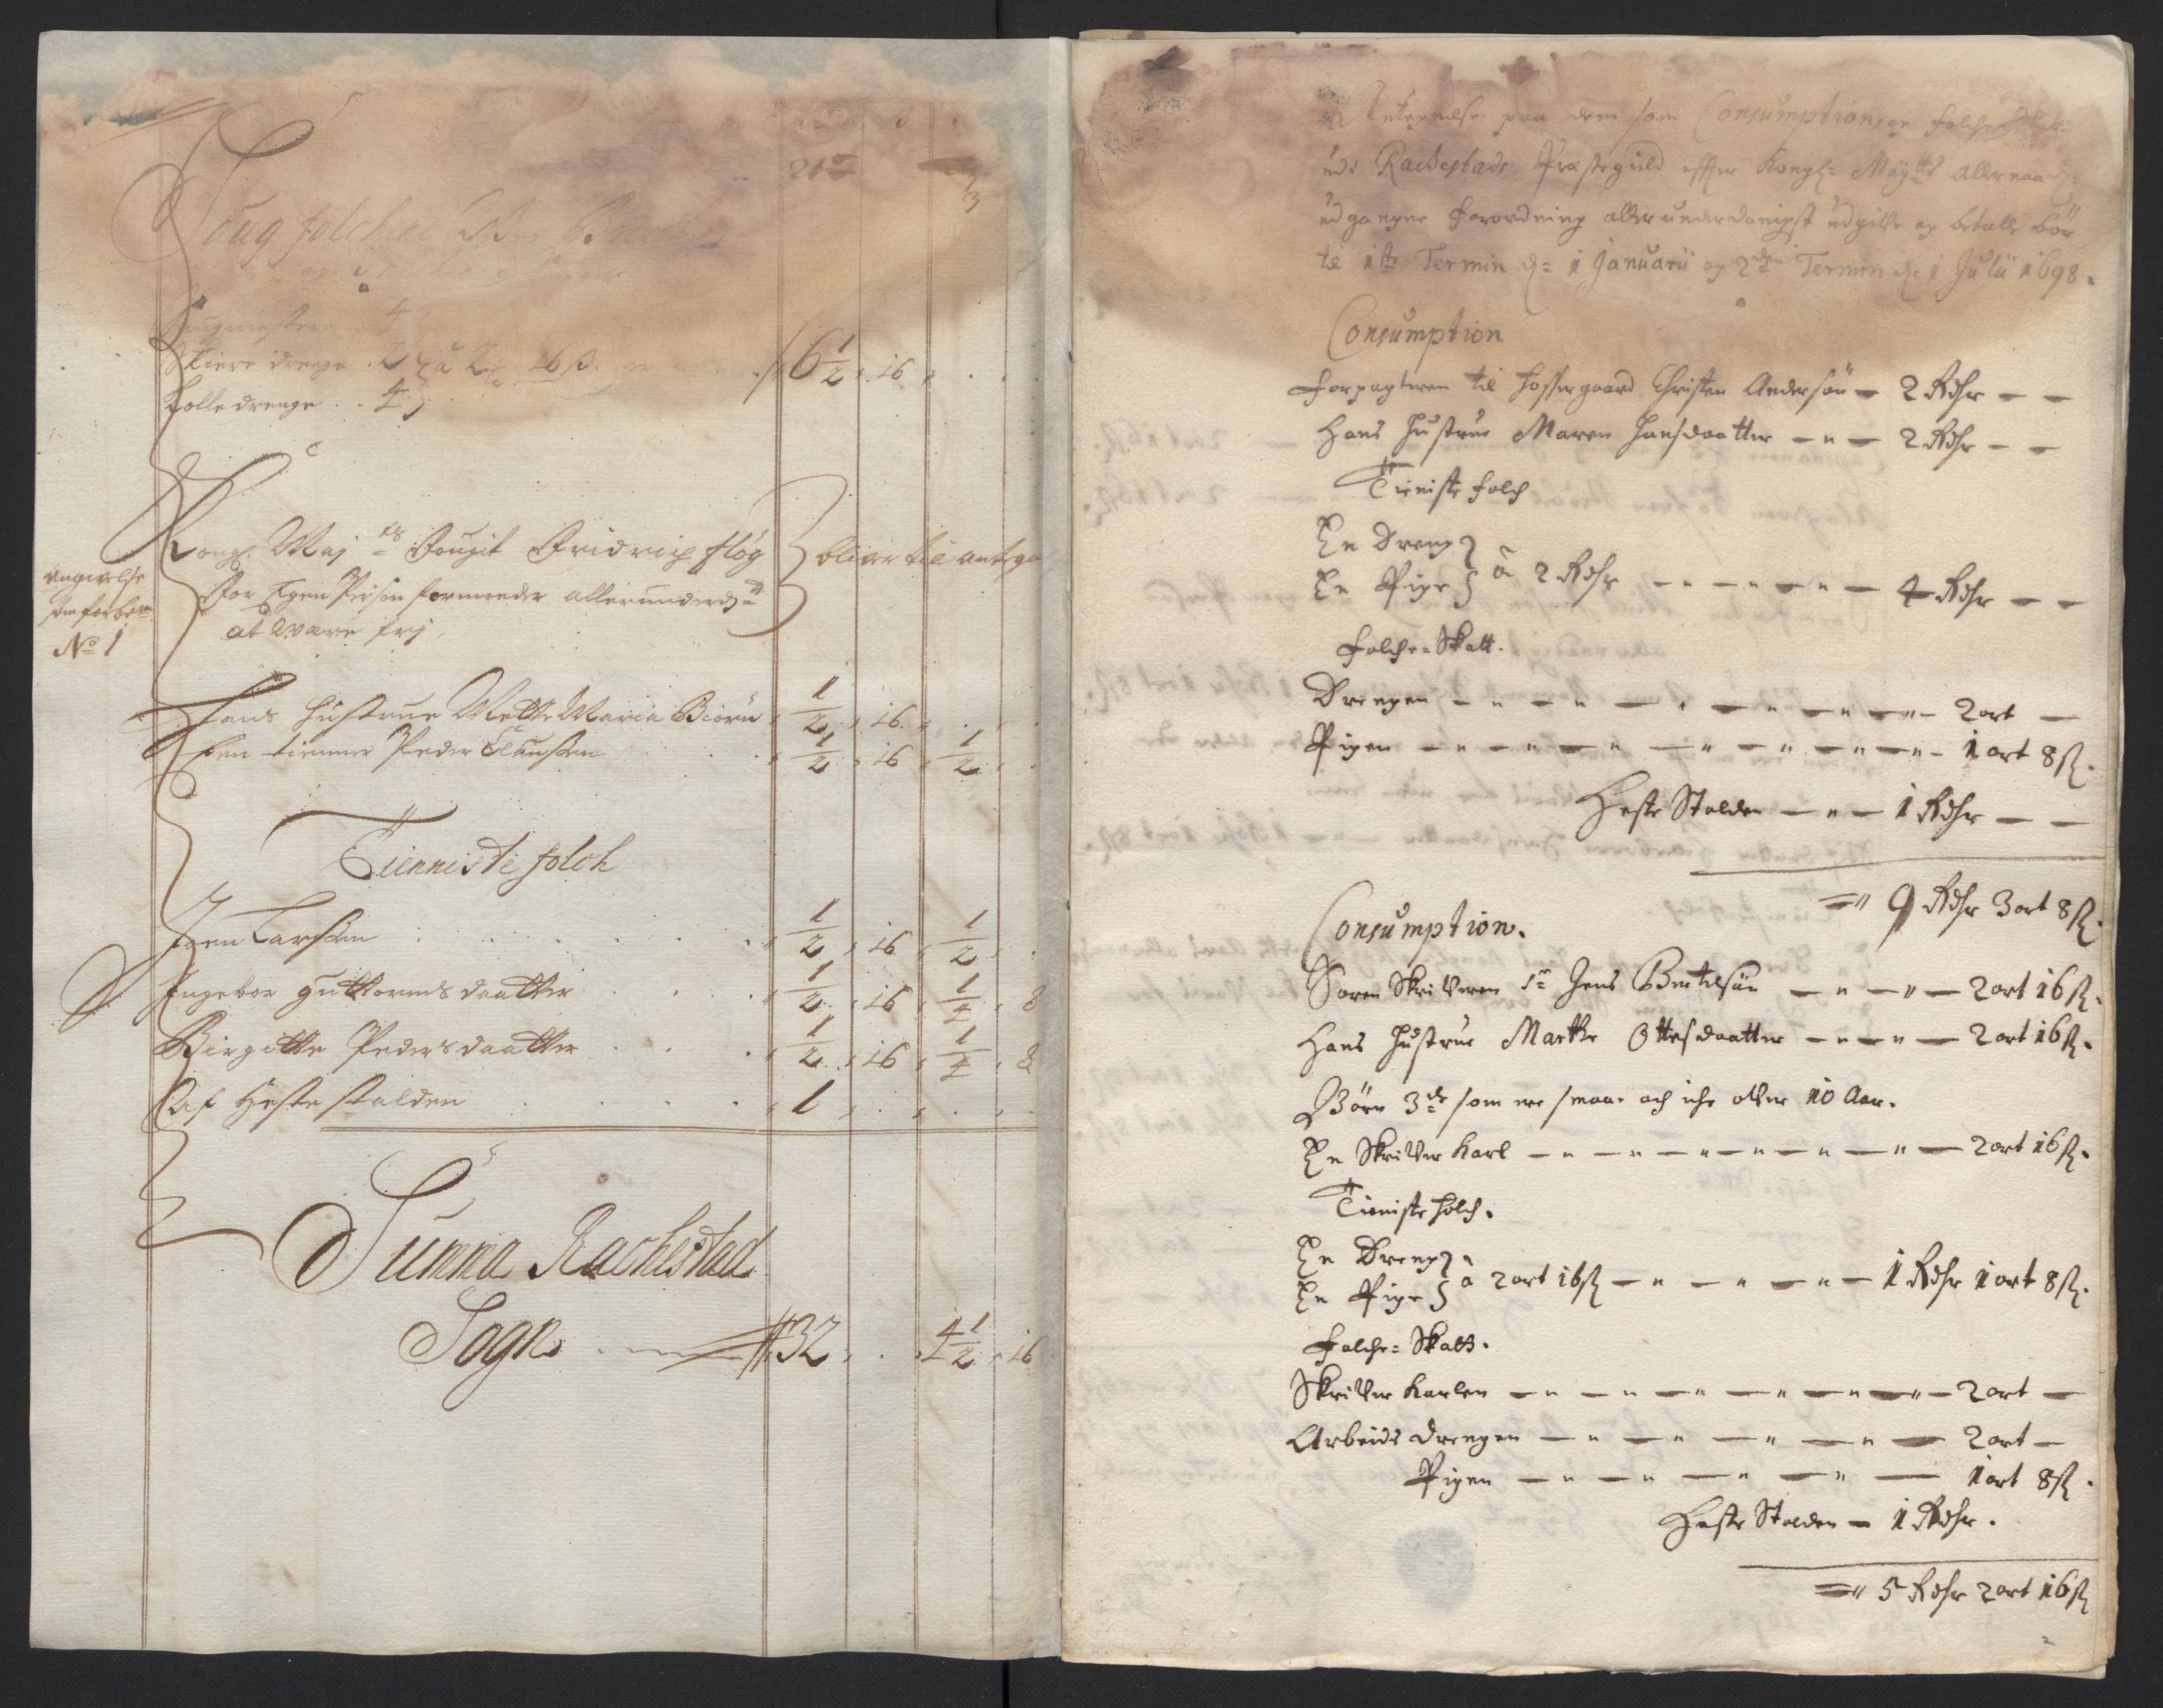 Saug folckene
Saugmestere 4
Skiere drenge 2 à 2 16 ß. 6 1/2 16
Kolle drenge 4
Kongl: Maj ts Fougit Fridrich fløg bliver til antegn
Angivelse
No 1
For Egen Person formoeder allerunderd:
at være frj,
Hans Hustrue Mette Maria Biørn 1/2 16
Een tienner Peder Clausen 1/2 16 1/2
Tienneste folch
Jgen Larsen 1/2 16 1/2
Ingebor Guttormsdaatter 1/2 16 1/4 8
Birgitte Pedersdaatter 1/2 16 1/4 8
Af Heste stalden 1
Summa Rachestad
Sogn 32 4 1/2 16
Antegnelse paa dem som Consumption og folche Skatt
udi Rachestads Præstegield efter Kongl: Maytts allernaad:
udgangne Forordning allerunderdanigst udgifve og betalle bør
til 1ste Termin d: 1 Januarii og 2den Termin d: 1 Julii 1698.
Consumption
Forpagteren til Hossergaard Christen Andersøn — 2 Rdhr — —
Hans Hustrue Maren Hansdaatter — " — 2 Rdhr — —
Tieniste folch
En Dreng
En Pige à 2 Rdhr — " — " — " — 4 Rdhr — —
Folche-Skatt.
Drengen — " — " — " — " — " — 2 ort —
Pigen — " — " — " — " — " — 1 ort 8 ß.
Heste Stalden — " — 1 Rdhr — —
9 Rdhr 3 ort 8 ß.
Consumption.
Soren Skrifveren Sr Jens Bertelsøn — " — " — 2 ort 16 ß.
Hans Hustrue Marthe Ottesdaatter — " — " — 2 ort 16 ß.
Børn 3de som ere smaa och iche ofver 10 Aar.
En Skrifver Karl — " — " — " — " — 2 ort 16 ß.
Tieniste folch.
En Dreng
En Pige à 2 ort 16 ß — " — " — " — 1 Rdhr 1 ort 8 ß.
Folche-Skatt.
Skrifver Karlen — " — " — " — " — " — 2 ort —
Arbeids drengen — " — " — " — " — 2 ort —
Pigen — " — " — " — " — 1 ort 8 ß.
Heste Stalden — 1 Rdhr.
5 Rdhr 2 ort 16 ß